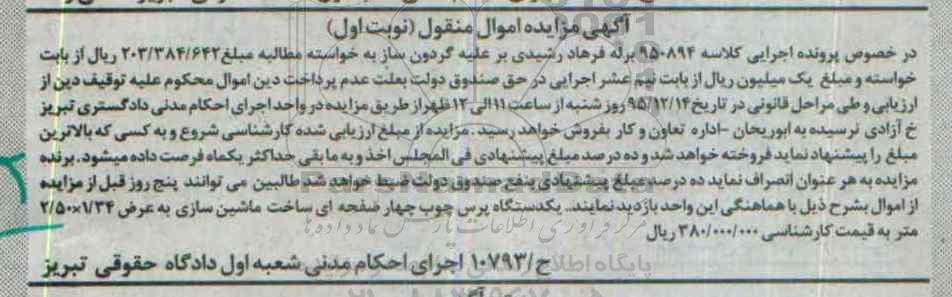 آگهی مزایده اموال منقول (نوبت اول)
در خصوص پرونده اجرایی کلاسه ۹۵۰۸۹۴ برله فرهاد رشیدی بر علیه گردون ساز به خواسته مطالبه مبلغ ۲۰۳/۳۸۴/۶۴۲ ریال از بابت
خواسته و مبلغ یک میلیون ریال از بابت نیم عشر اجرایی در حق صندوق دولت بعلت عدم پرداخت دین اموال محکوم علیه توقیف دین از
ارزیابی و طی مراحل قانونی در تاریخ ۹۵/۱۲/۱۴ روز شنبه از ساعت ۱۱ الی ۱۲ ظهر از طریق مزایده در واحد اجرای احکام مدنی دادگستری تبریز
خ آزادی نرسیده به ابوریحان -اداره تعاون و کار بفروش خواهد رسید. مزایده از مبلغ ارزیابی شده کارشناسی شروع و به کسی که بالاترین
مبلغ را پیشنهاد نماید فروخته خواهد شد و ده درصد مبلغ پیشنهادی فی المجلس اخذ و به مابقی حداکثر یکماه فرصت داده میشود. برنده
مزایده به هر عنوان انصراف نماید ده درصد مبلغ پیشنهادی بنفع صندوق دولت ضبط خواهد شد طالبین می توانند پنج روز قبل از مزایده
از اموال بشرح ذیل با هماهنگی این واحد بازدید نمایند.. یکدستگاه پرس چوب چهار صفحه ای ساخت ماشین سازی به عرض ۲/۵۰×۱/۳۴
متر به قیمت کارشناسی ۳۸۰/۰۰۰/۰۰۰ ریال
ح/۱۰۷۹۳ اجرای احکام مدنی شعبه اول دادگاه حقوقی تبریز